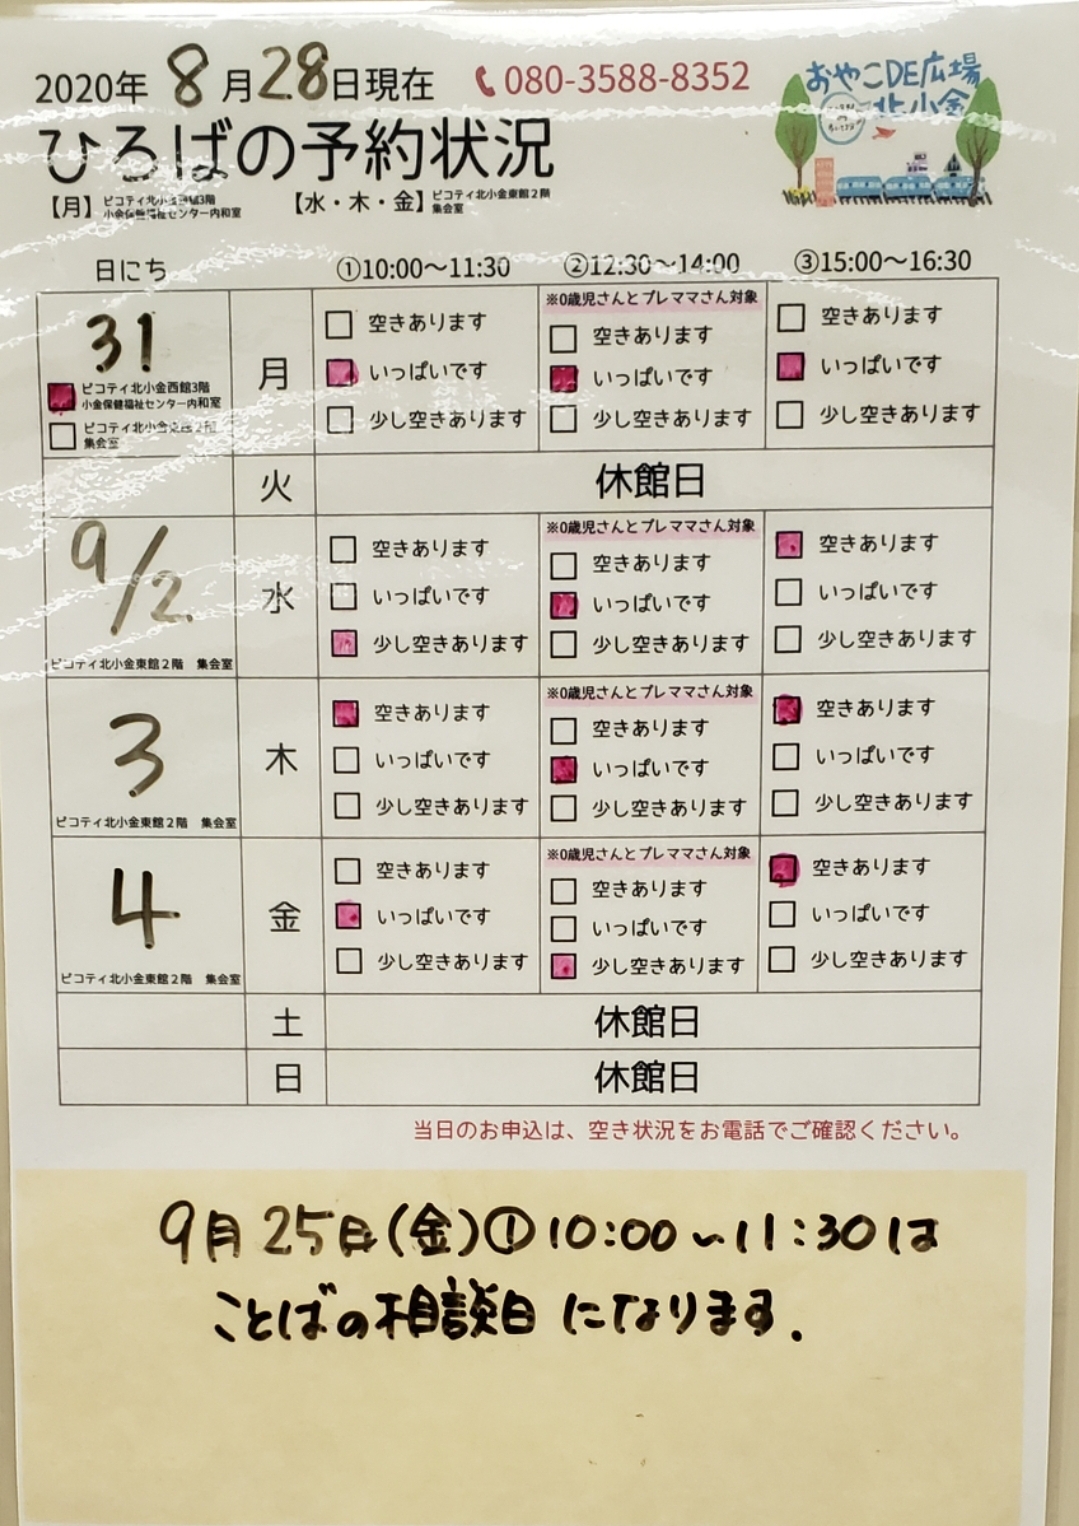 2020年 8月28日現在 080-3588-8352
おやこDE広場
北小金
ひろばの予約状況
【月】ピコティ北小金西館3階
小金保健福祉センター内和室
【水・木・金】ピコティ北小金東館2階
集会室
日にち ①10:00〜11:30 ②12:30〜14:00 ③15:00〜16:30
31 月
ピコティ北小金西館3階
小金保健福祉センター内和室
ピコティ北小金東館2階
集会室
空きあります
いっぱいです
少し空きあります
※0歳児さんとプレママさん対象
空きあります
いっぱいです
少し空きあります
空きあります
いっぱいです
少し空きあります
火 休館日
9/2 水
ピコティ北小金東館2階 集会室
空きあります
いっぱいです
少し空きあります
※0歳児さんとプレママさん対象
空きあります
いっぱいです
少し空きあります
空きあります
いっぱいです
少し空きあります
3 木
ピコティ北小金東館2階 集会室
空きあります
いっぱいです
少し空きあります
※0歳児さんとプレママさん対象
空きあります
いっぱいです
少し空きあります
空きあります
いっぱいです
少し空きあります
4 金
ピコティ北小金東館2階 集会室
空きあります
いっぱいです
少し空きあります
※0歳児さんとプレママさん対象
空きあります
いっぱいです
少し空きあります
空きあります
いっぱいです
少し空きあります
土 休館日
日 休館日
当日のお申込は、空き状況をお電話でご確認ください。
9月25日(金)①10:00〜11:30は
ことばの相談日になります.